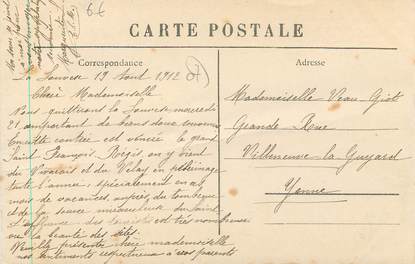 6€
CARTE POSTALE
Correspondance
Adresse
La Louvesc 19 Aout 1912
Chère Mademoiselle
Nous quitterons La Louvesc mercredi
Et emportant de biens doux souvenirs
contrée est vénéré le grand
Saint François Régis on y vient
du Vivarais et du Velay en pèlerinage
toute l'année, spécialement en ce
mois de vacances, auprès du tombeau
et de la source miraculeuse du Saint
L'affluence des touristes est très nombreuse
vu la beauté des sites.
Veuillez présenter chère mademoiselle
nos sentiments respectueux à vos parents
Mademoiselle Veau-Giot
Grande Rue
Villeneuve-la-Guyard
Yonne